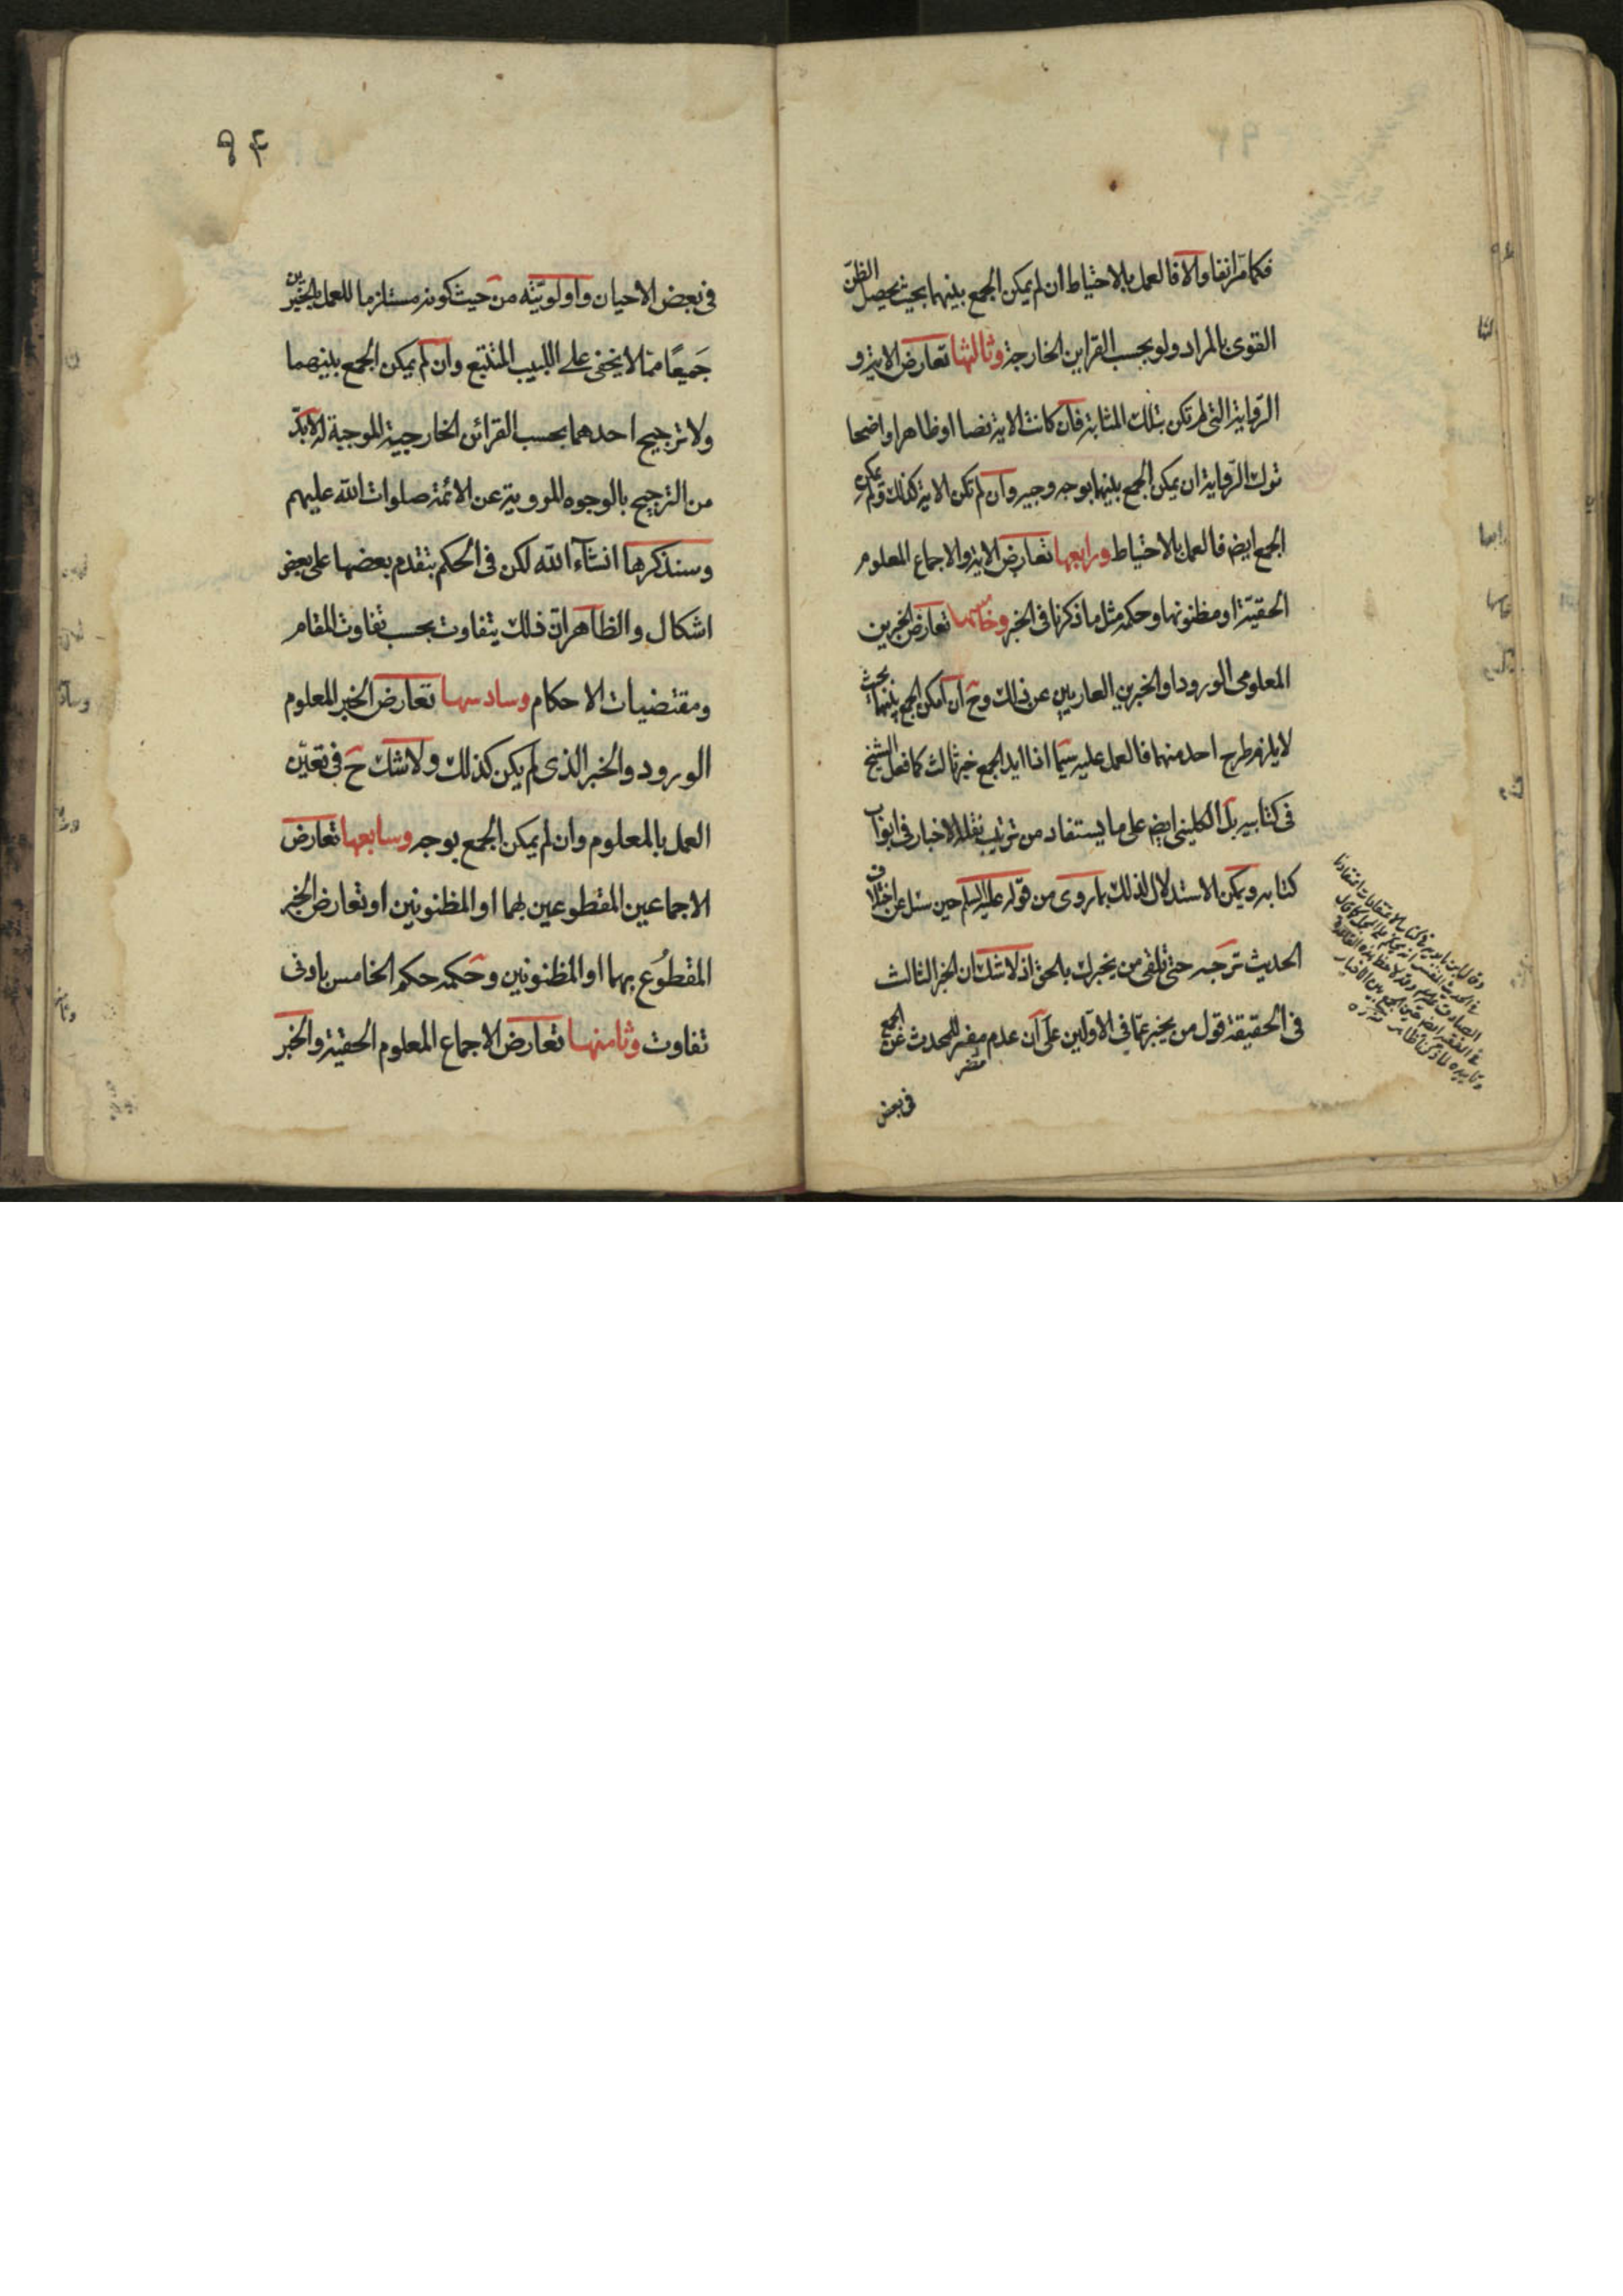 فكما مر انفا والا فالعمل بالاحتياط ان لم يمكن الجمع بينهما بحيث يحصل الظن
القوى بالمراد ولو بحسب القراين الخارجة وثالثها تعارض الاية و
الرواية التى لم تكن بتلك المثابة فان كانت الاية نصا او ظاهرا واضحا
تورك الرواية ان يمكن الجمع بينهما بوجه وجيه وان لم تكن الاية كذلك ولم يمكن
الجمع ايضا فالعمل بالاحتياط ورابعها تعارض الاية والاجماع المعلوم
الحقية او مظنونها وحكمه مثل ما ذكرنا فى الخبر وخامسها تعارض الخبرين
المعلومى الورود او الخبرين العاريين عن ذلك وح ان امكن الجمع بينهما بحيث
لا يلزم طرح احد منهما فالعمل عليه سيما اذا ايد الجمع خبر ثالث كما فعل الشيخ
فى كتابيه بل الكلينى ايض على ما يستفاد من ترتيب نقله الاخبار فى ابواب
كتابه ويمكن الاستدلال لذلك بما روى من قوله عليه السلم حين سئل عن اختلاف
الحديث ترجه حتى تلقى من يخبرك بالحق اذ لا شك ان الخبر الثالث
فى الحقيقة قول من يخبر عما فى الاولين على ان عدم مفر للمحدث عن الجمع
مفر
فى بعض
وقال ابن بابويه فى كتاب الاعتقادات اعتقادنا
فى الحديث المفسر انه يحكم على المجمل كما قال
الصادق عليه السلم وقد لاحظ هذه القاعدة
فى الفقيه ايضا حين الجمع بين الاخبار
٩۴
فى بعض الاحيان واولويته من حيث كونه مستلزما للعمل بالخبرين
جميعًا مما لا يخفى على اللبيب المتتبع وان لم يمكن الجمع بينهما
ولا ترجيح احدهما بحسب القرائن الخارجية الموجبة له لا بد
من الترجيح بالوجوه المروية عن الائمة صلوات الله عليهم
وسنذكرها انشاء الله لكن فى الحكم بتقدم بعضها على بعض
اشكال والظاهر ان ذلك يتفاوت بحسب تفاوت المقام
ومقتضيات الاحكام وسادسها تعارض الخبر المعلوم
الورود والخبر الذى لم يكن كذلك ولا شك ح فى تعين
العمل بالمعلوم وان لم يمكن الجمع بوجه وسابعها تعارض
الاجماعين المقطوعين بهما او المظنونين او تعارض الخبر
المقطوع بهما او المظنونين وحكمه حكم الخامس بادنى
تفاوت وثامنها تعارض الاجماع المعلوم الحقية والخبر